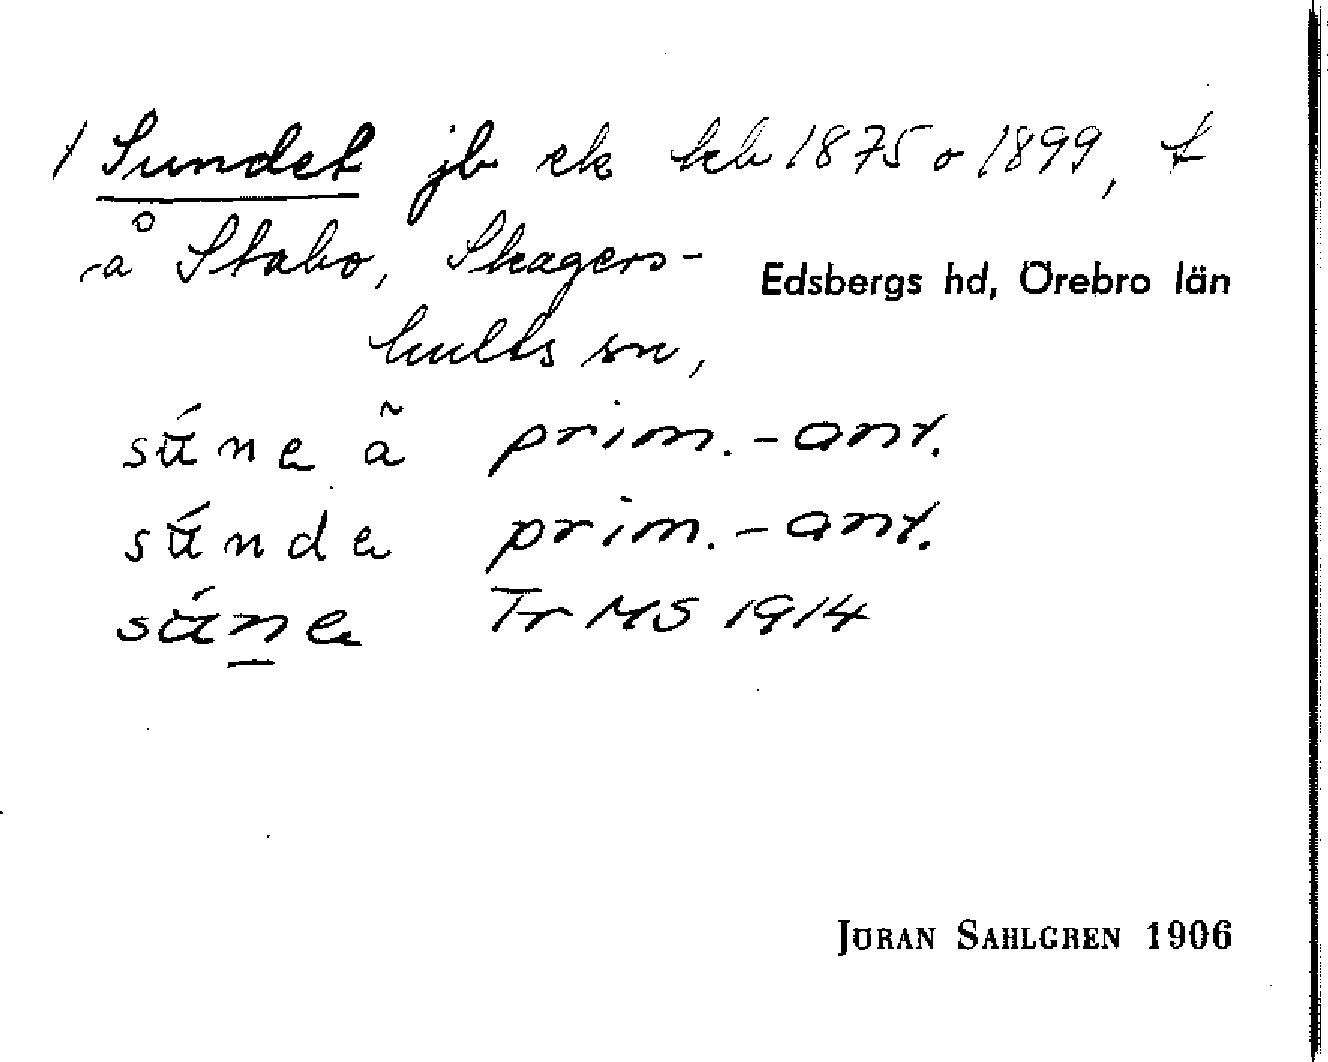 1 Sundet jb ek kb 1875 o 1899, t
på Stabo, Skagers-
Edsbergs hd, Örebro län
hults sn,
súne ã prim.-ant.
súnde prim.-ant.
súne Tr MS 1914
JÖRAN SAHLGREN 1906